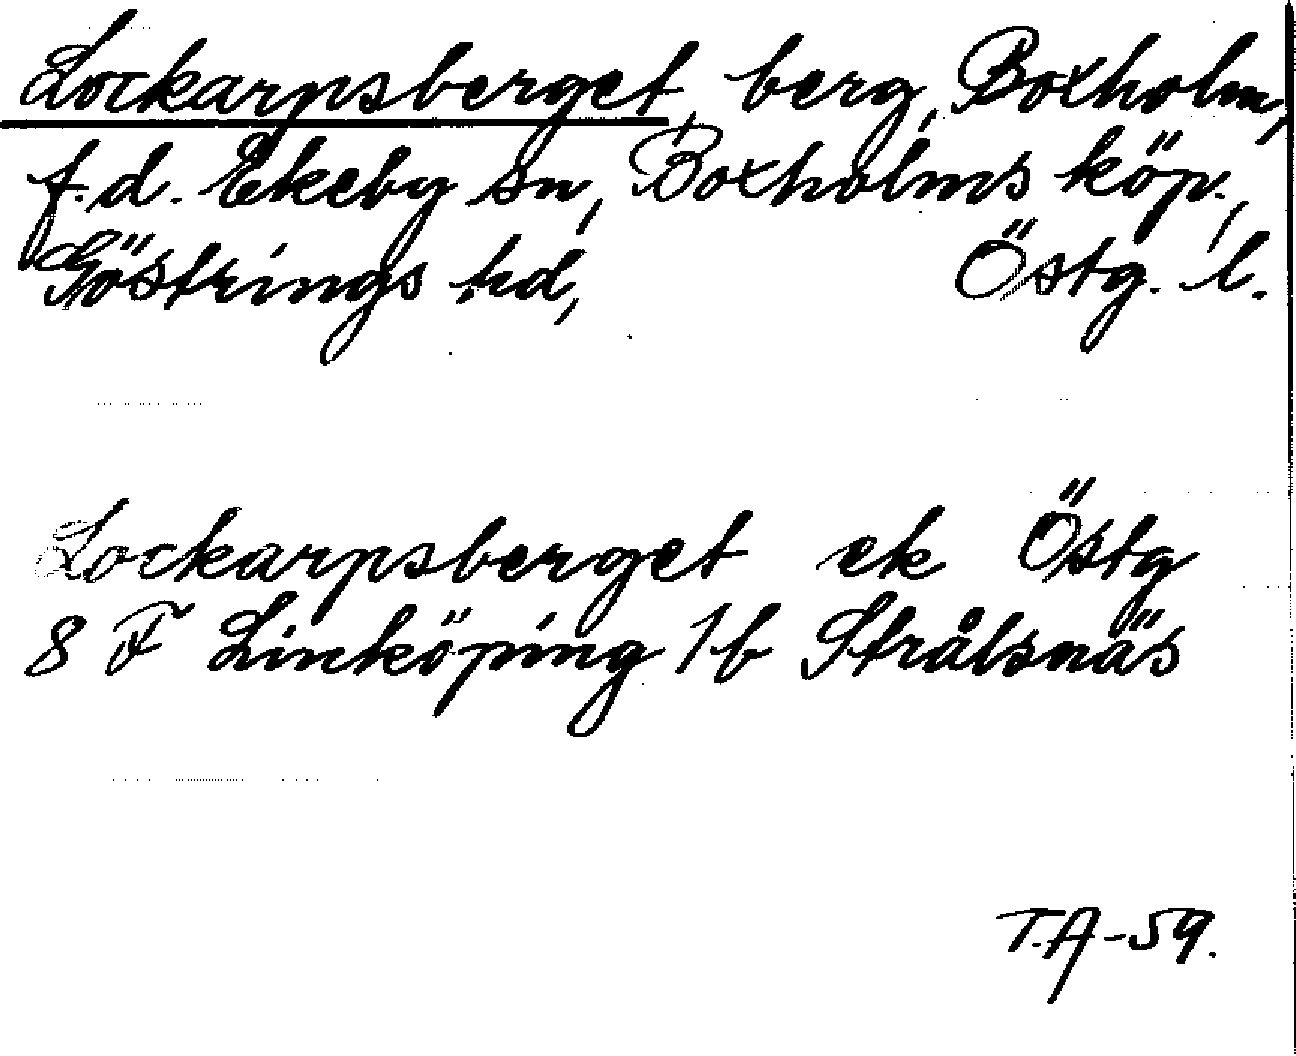 Lockarpsberget, berg, Boxholm,
f.d. Ekeby sn, Boxholms köp.,
Göstrings hd, Östg. l.
Lockarpsberget ek Östg
8 F Linköping 1b Strålsnäs
T.A-59.